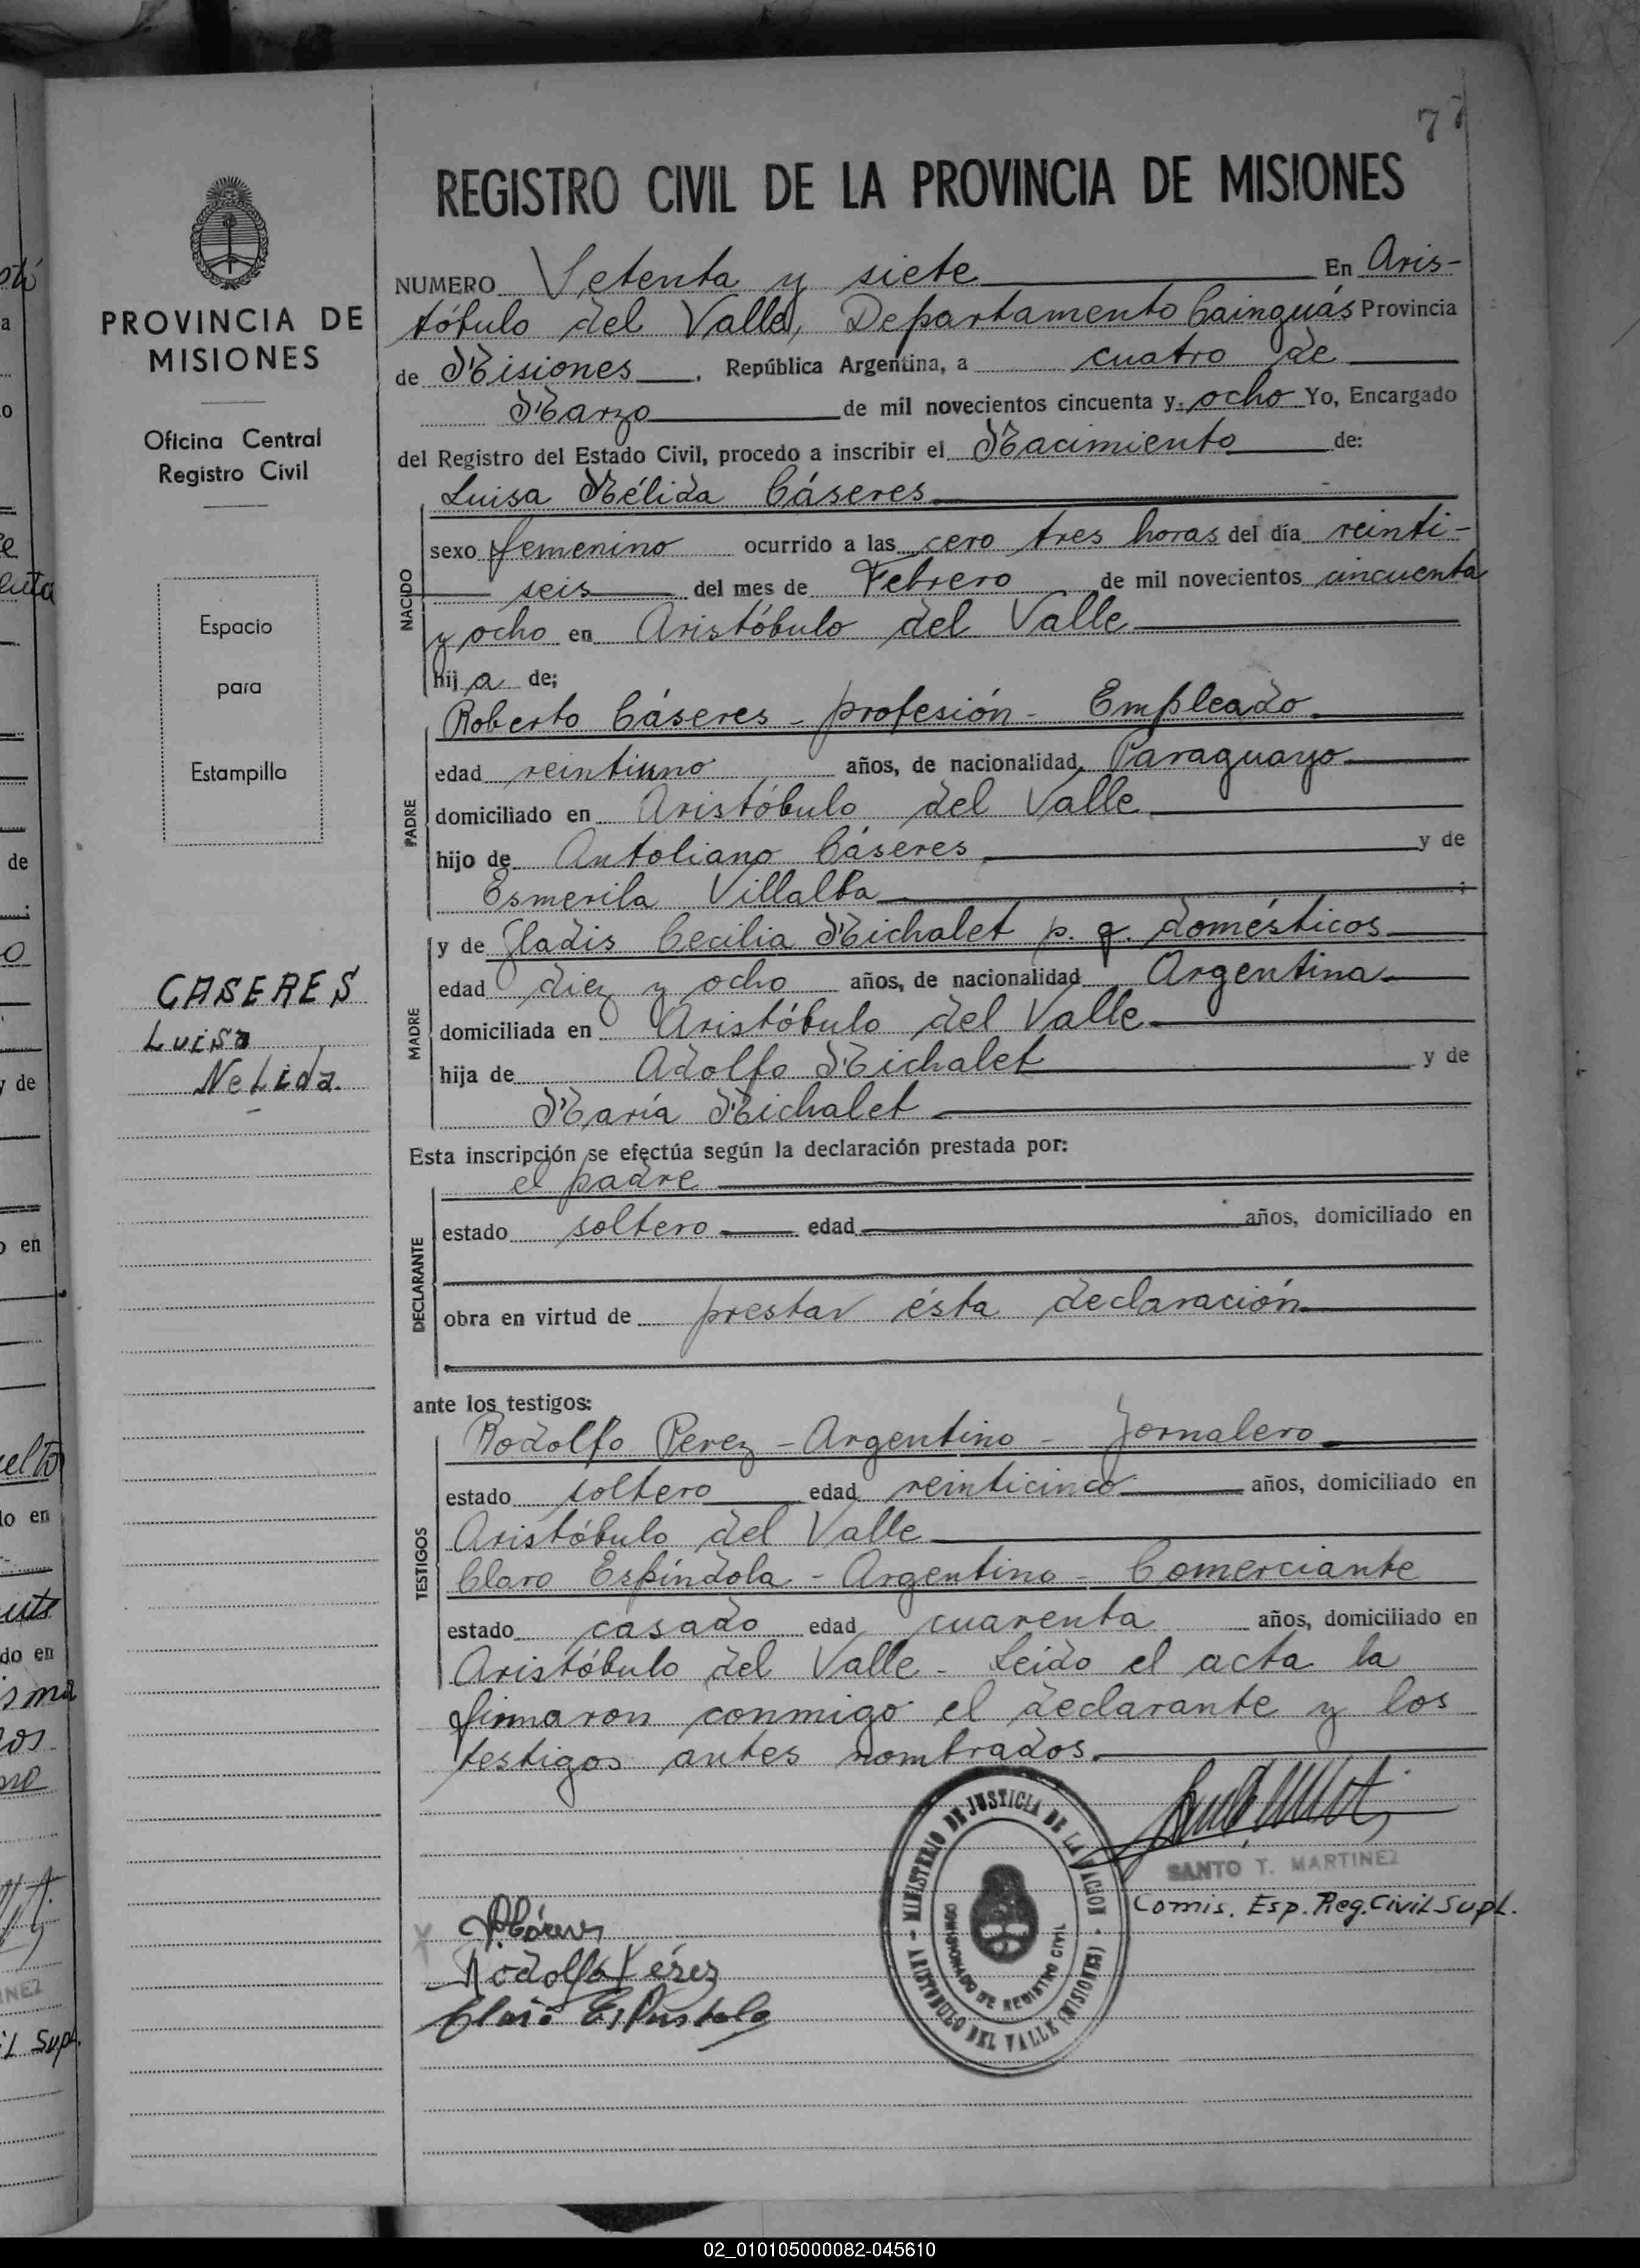 77
REGISTRO CIVIL DE LA PROVINCIA DE MISIONES
PROVINCIA DE
MISIONES
Oficina Central
Registro Civil
Espacio
para
Estampilla
CASERES
Luisa
Nelida.
NUMERO Setenta y siete En Aris-
tóbulo del Valle, Departamento Cainguás Provincia
de Misiones, República Argentina, a cuatro de
Marzo de mil novecientos cincuenta y ocho Yo, Encargado
del Registro del Estado Civil, procedo a inscribir el Nacimiento de:
NACIDO
Luisa Nélida Cáseres
sexo femenino ocurrido a las cero tres horas del día veinti-
seis del mes de Febrero de mil novecientos cincuenta
y ocho en Aristóbulo del Valle
hija de;
PADRE
Roberto Cáseres - profesión - Empleado
edad veintiuno años, de nacionalidad Paraguayo
domiciliado en Aristóbulo del Valle
hijo de Antoliano Cáseres y de
Esmerila Villalba ;
MADRE
y de Gladis Cecilia Michalet p. q. domésticos
edad diez y ocho años, de nacionalidad Argentina
domiciliada en Aristóbulo del Valle
hija de Adolfo Michalet y de
María Michalet
Esta inscripción se efectúa según la declaración prestada por:
DECLARANTE
el padre
estado soltero edad años, domiciliado en
obra en virtud de prestar ésta declaración
ante los testigos:
TESTIGOS
Rodolfo Perez - Argentino - Jornalero
estado soltero edad veinticinco años, domiciliado en
Aristóbulo del Valle
Claro Espíndola - Argentino - Comerciante
estado casado edad cuarenta años, domiciliado en
Aristóbulo del Valle - Leido el acta la
firmaron conmigo el declarante y los
testigos antes nombrados.
SANTO T. MARTINEZ
Comis. Esp. Reg. Civil Supl.
MINISTERIO DE JUSTICIA DE LA NACION
COMISIONADO DE REGISTRO CIVIL
ARISTOBULO DEL VALLE (MISIONES)
Rodolfo Pérez
02_010105000082-045610